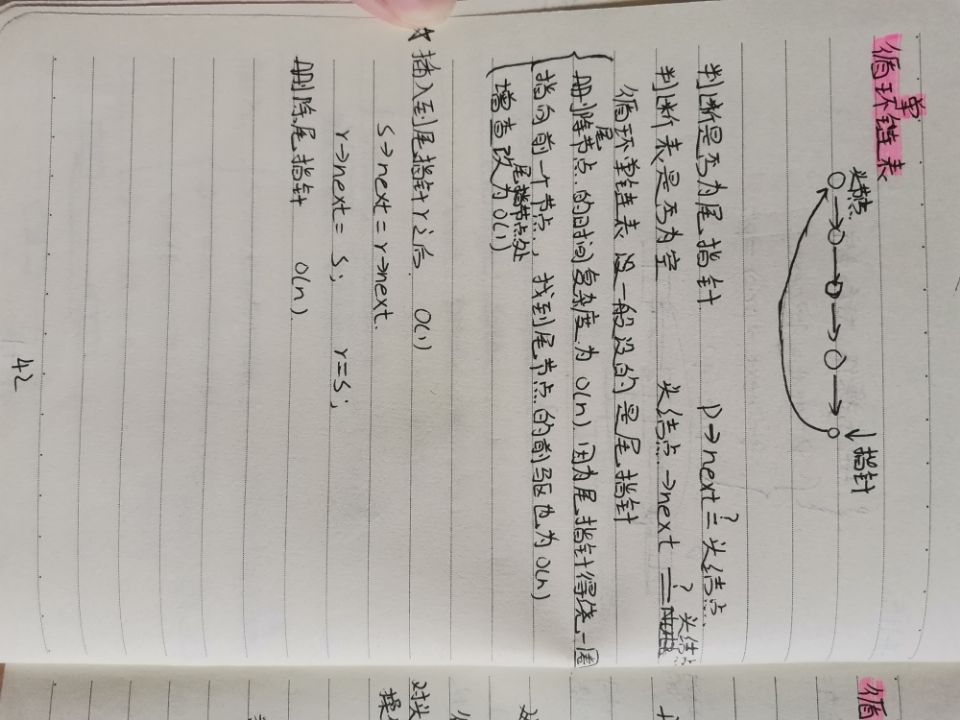 循环单链表
头节点
↓指针
判断是否为尾指针 p→next ?= 头结点
判断表是否为空 头结点→next ?= 头结点
循环单链表 设一般设的是尾指针
删除尾节点的时间复杂度为O(n).因为尾指针得绕一圈
指向前一个节点, 找到尾节点的前驱也为O(n)
尾指节点处
增查改为O(1)
☆插入到尾指针r之后. O(1)
S→next = r→next.
r→next = S; r=S;
删除尾指针 O(n)
42
循
对头
操